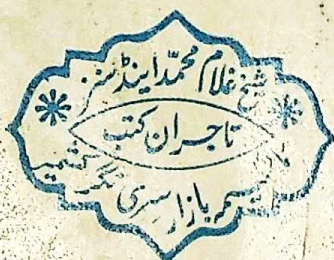 شیخ غلام محمد اینڈ سنز
تاجران کتب
بازار سری نگر کشمیر